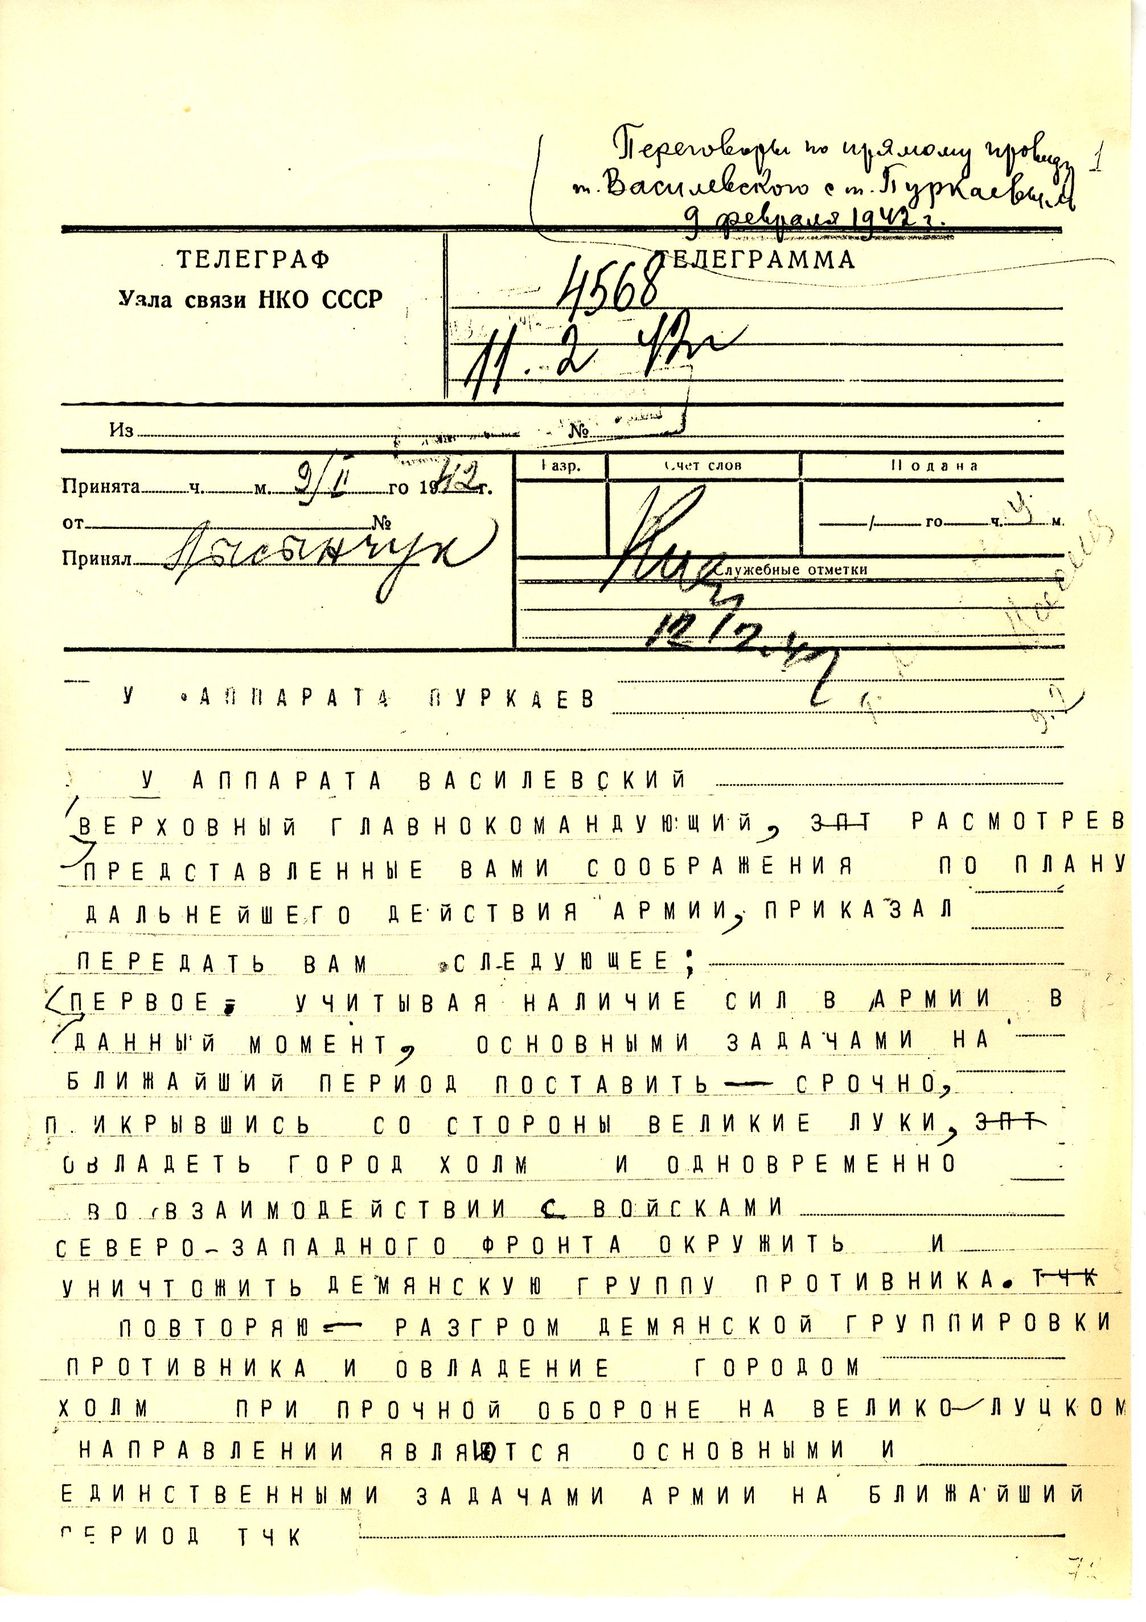 Переговоры по прямому проводу 1
т. Василевского с т. Пуркаевым
9 февраля 1942 г.
ТЕЛЕГРАФ
Узла связи НКО СССР
ТЕЛЕГРАММА
4568
11. 2 42г
Из № 
Принята ч. м. 9/II го 1942 г.
от №
Принял
Разр. Счет слов Подана
/ го ч. м.
Служебные отметки
12/2.42
9.2
У АППАРАТА ПУРКАЕВ
У АППАРАТА ВАСИЛЕВСКИЙ
ВЕРХОВНЫЙ ГЛАВНОКОМАНДУЮЩИЙ, ЗПТ РАСМОТРЕВ
ПРЕДСТАВЛЕННЫЕ ВАМИ СООБРАЖЕНИЯ ПО ПЛАНУ
ДАЛЬНЕЙШЕГО ДЕЙСТВИЯ АРМИИ, ПРИКАЗАЛ
ПЕРЕДАТЬ ВАМ СЛЕДУЮЩЕЕ;
ПЕРВОЕ- УЧИТЫВАЯ НАЛИЧИЕ СИЛ В АРМИИ В
ДАННЫЙ МОМЕНТ, ОСНОВНЫМИ ЗАДАЧАМИ НА
БЛИЖАЙШИЙ ПЕРИОД ПОСТАВИТЬ — СРОЧНО,
П.ИКРЫВШИСЬ СО СТОРОНЫ ВЕЛИКИЕ ЛУКИ, ЗПТ
ОВЛАДЕТЬ ГОРОД ХОЛМ И ОДНОВРЕМЕННО
ВО ВЗАИМОДЕЙСТВИИ С ВОЙСКАМИ
СЕВЕРО-ЗАПАДНОГО ФРОНТА ОКРУЖИТЬ И
УНИЧТОЖИТЬ ДЕМЯНСКУЮ ГРУППУ ПРОТИВНИКА. ТЧК
ПОВТОРЯЮ — РАЗГРОМ ДЕМЯНСКОЙ ГРУППИРОВКИ
ПРОТИВНИКА И ОВЛАДЕНИЕ ГОРОДОМ
ХОЛМ ПРИ ПРОЧНОЙ ОБОРОНЕ НА ВЕЛИКО-ЛУЦКОМ
НАПРАВЛЕНИИ ЯВЛЯЮТСЯ ОСНОВНЫМИ И
ЕДИНСТВЕННЫМИ ЗАДАЧАМИ АРМИИ НА БЛИЖАЙШИЙ
ПЕРИОД ТЧК